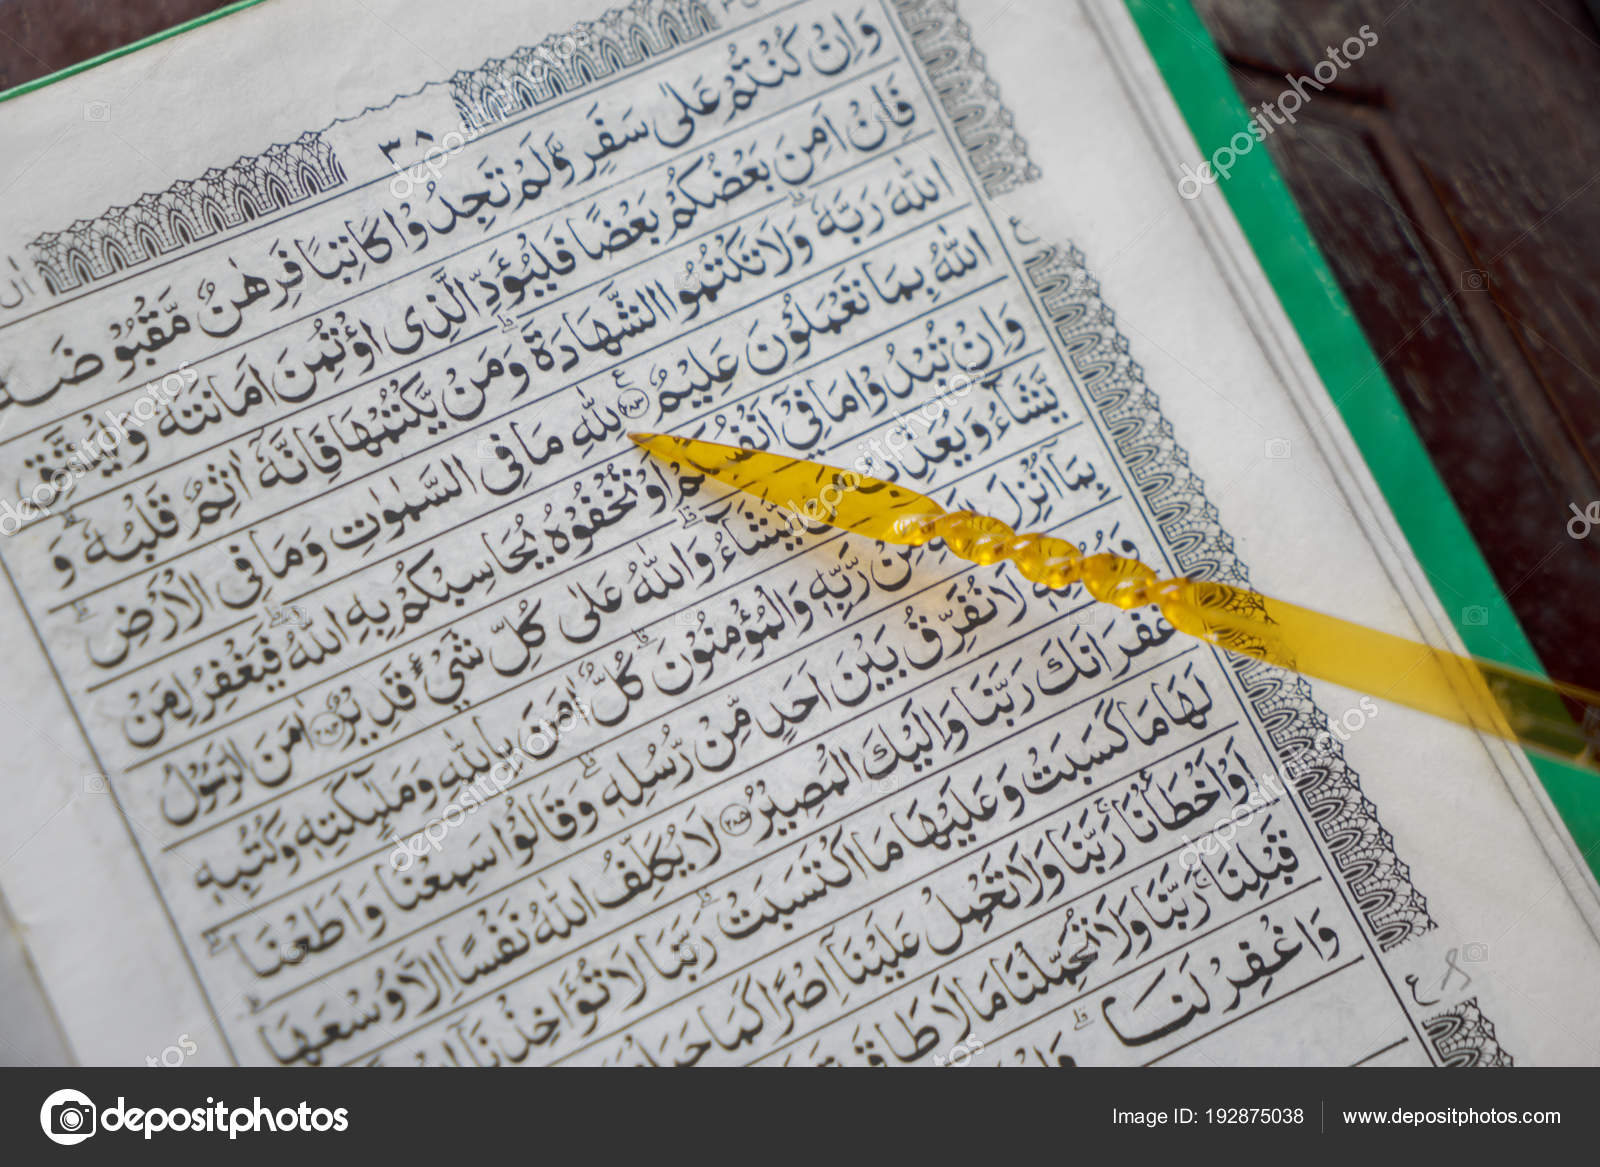 ٣٨
وَاِنْ كُنْتُمْ عَلٰى سَفَرٍ وَّلَمْ تَجِدُوْا كَاتِبًا فَرِهٰنٌ مَّقْبُوْضَةٌ
فَاِنْ اَمِنَ بَعْضُكُمْ بَعْضًا فَلْيُؤَدِّ الَّذِى اؤْتُمِنَ اَمَانَتَهٗ وَلْيَتَّقِ
اللّٰهَ رَبَّهٗ ۗ وَلَا تَكْتُمُوا الشَّهَادَةَ ۗ وَمَنْ يَّكْتُمْهَا فَاِنَّهٗٓ اٰثِمٌ قَلْبُهٗ ۗ وَ
اللّٰهُ بِمَا تَعْمَلُوْنَ عَلِيْمٌ ٢٨٣ لِلّٰهِ مَا فِى السَّمٰوٰتِ وَمَا فِى الْاَرْضِ ۗ
وَاِنْ تُبْدُوْا مَا فِيْٓ اَنْفُسِكُمْ اَوْ تُخْفُوْهُ يُحَاسِبْكُمْ بِهِ اللّٰهُ ۗ فَيَغْفِرُ لِمَنْ
يَّشَاۤءُ وَيُعَذِّبُ يَّشَاۤءُ ۗ وَاللّٰهُ عَلٰى كُلِّ شَيْءٍ قَدِيْرٌ ٢٨٤ اٰمَنَ الرَّسُوْلُ
بِمَآ اُنْزِلَ مِنْ رَّبِّهٖ وَالْمُؤْمِنُوْنَ ۗ كُلٌّ اٰمَنَ بِاللّٰهِ وَمَلٰۤىِٕكَتِهٖ وَكُتُبِهٖ
وَرُسُلِهٖ ۗ لَا نُفَرِّقُ بَيْنَ اَحَدٍ مِّنْ رُّسُلِهٖ ۗ وَقَالُوْا سَمِعْنَا وَاَطَعْنَا ۗ
غُفْرَانَكَ رَبَّنَا وَاِلَيْكَ الْمَصِيْرُ ٢٨٥ لَا يُكَلِّفُ اللّٰهُ نَفْسًا اِلَّا وُسْعَهَا ۗ
لَهَا مَا كَسَبَتْ وَعَلَيْهَا مَا اكْتَسَبَتْ ۗ رَبَّنَا لَا تُؤَاخِذْنَآ
اَوْ اَخْطَأْنَا ۚ رَبَّنَا وَلَا تَحْمِلْ عَلَيْنَآ اِصْرًا كَمَا
قَبْلِنَا ۚ رَبَّنَا وَلَا تُحَمِّلْنَا مَا لَا طَاقَةَ
وَاغْفِرْ لَنَا ۗ
ع
ع
depositphotos
Image ID: 192875038
www.depositphotos.com